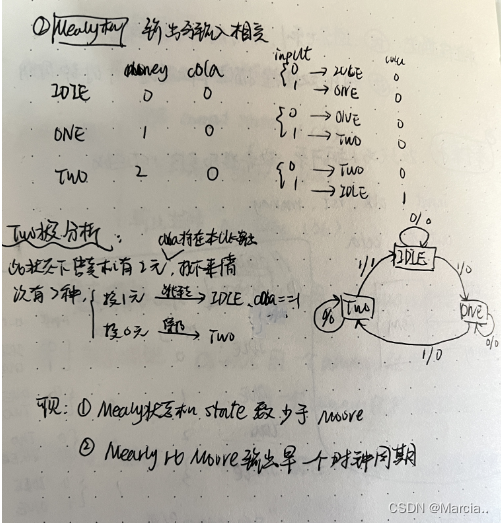 ② Mealy机 输出与输入相关
money cola input cola
IDLE 0 0 { 0 → IDLE 0
1 → ONE 0
ONE 1 0 { 0 → ONE 0
1 → TWO 0
TWO 2 0 { 0 → TWO 0
1 → IDLE 1
Two 分析:
此状态下 有2元, 接下来情
况有2种. { 投1元 → IDLE, cola==1
投0元 → TWO
0/0
IDLE
1/1 1/0
TWO ONE
0/0 0/0
1/0
可见: ① Mealy状态机 state 数少于 moore
② Mearly rb Moore 输出早一个时钟周期
CSDN @Marcia..